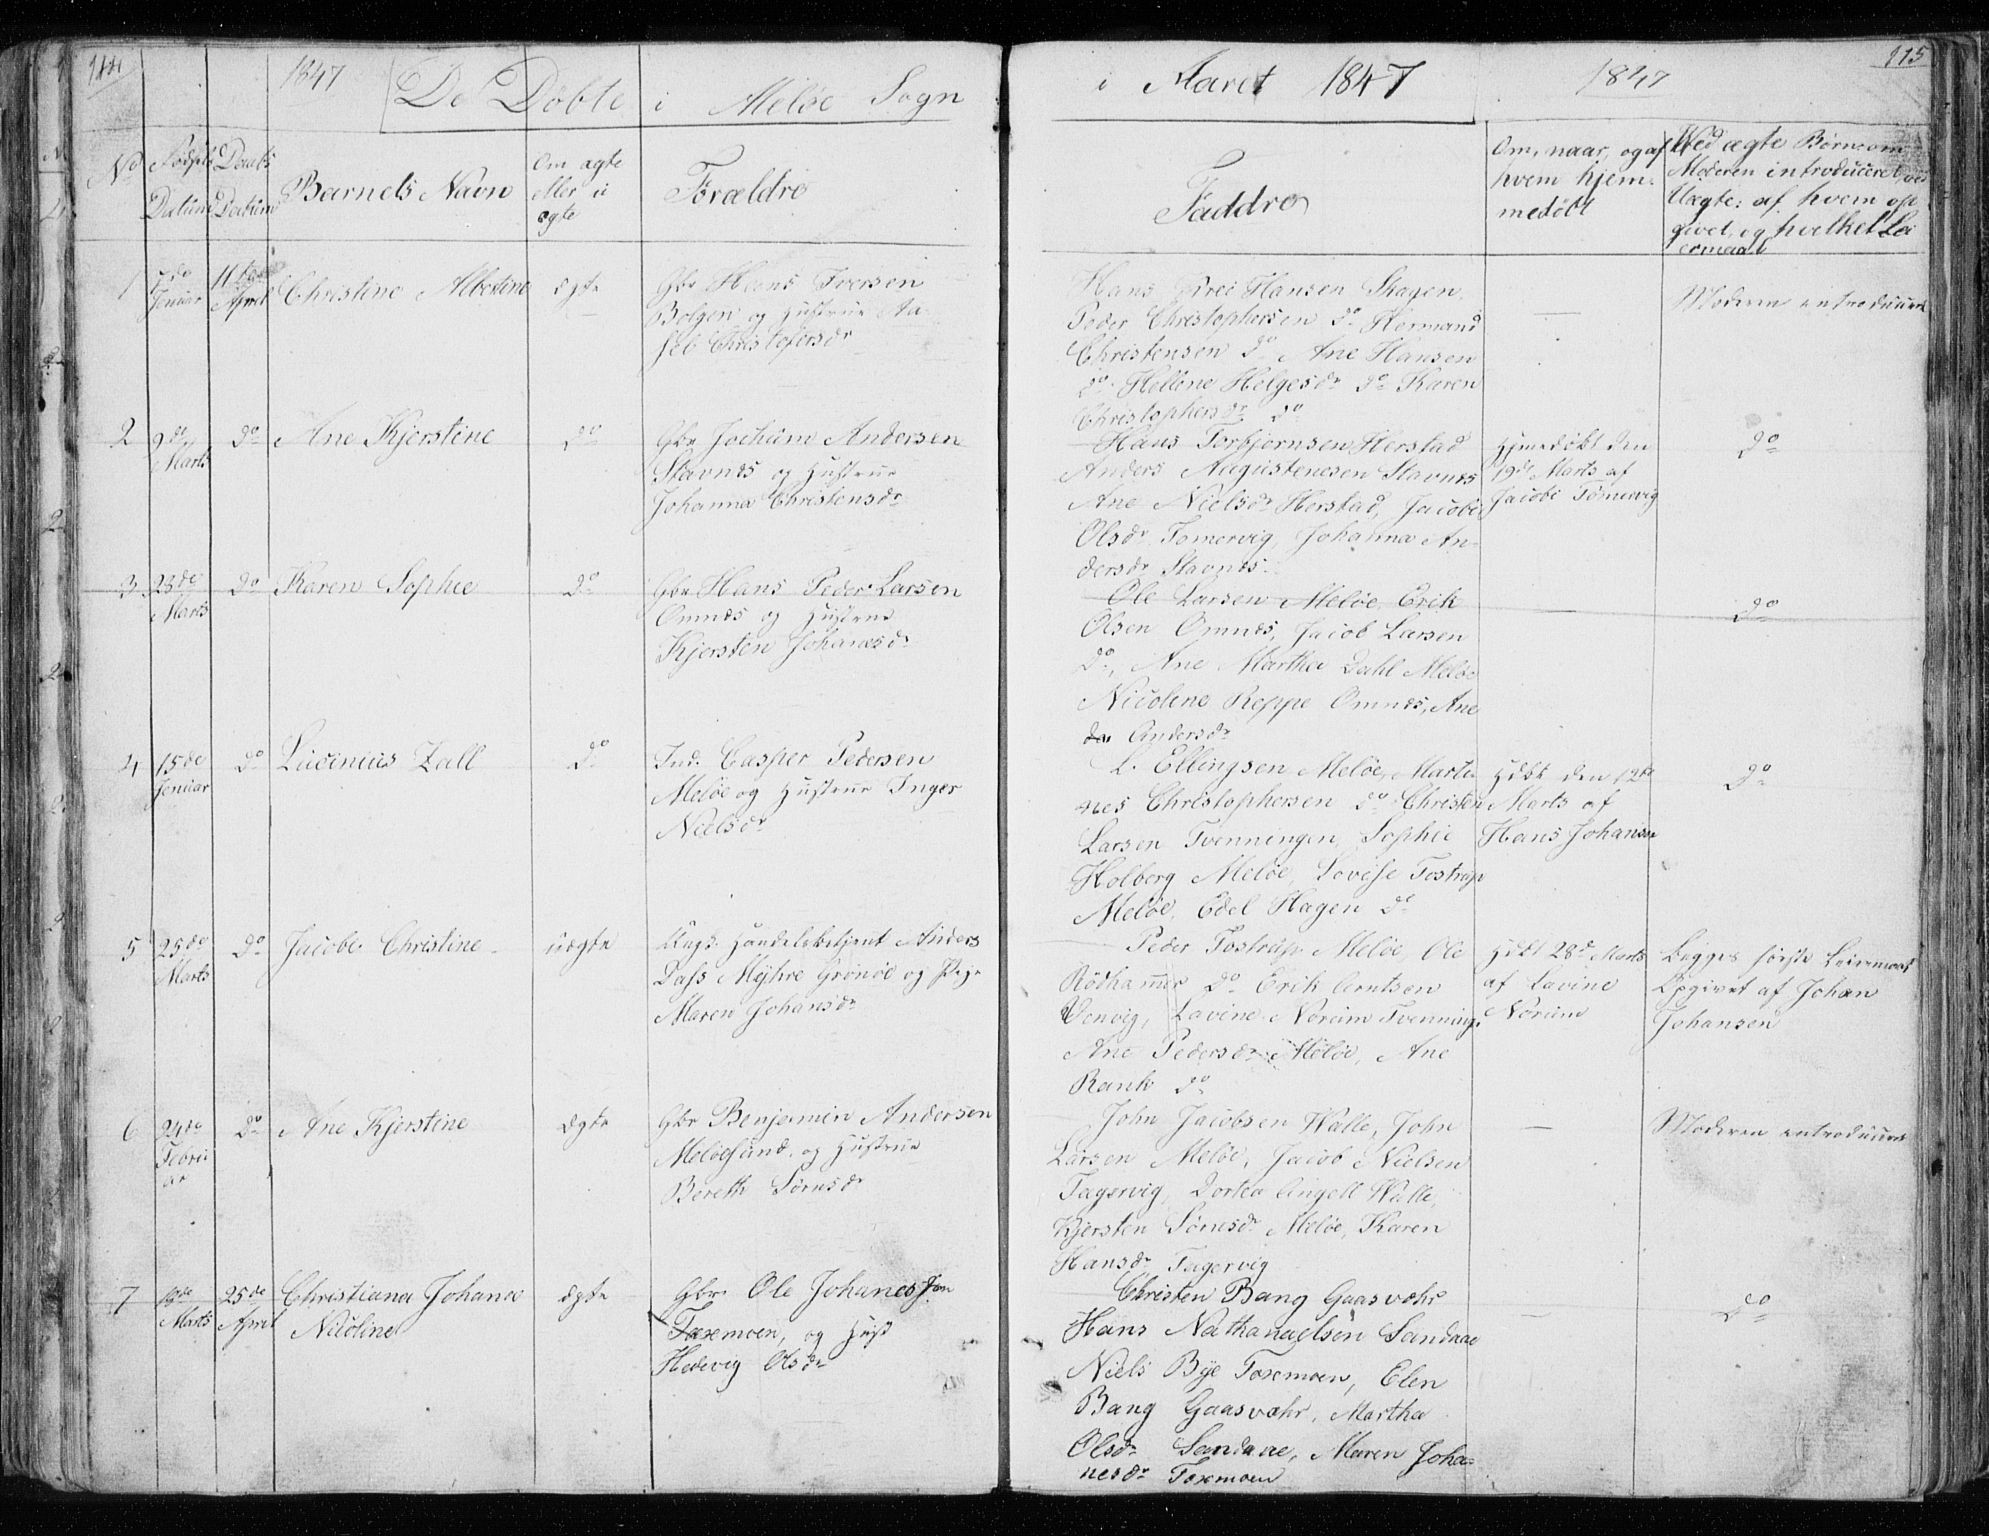 114
1847
De Döbte i Meløe Sogn
i Aaret 1847
1847
115
No
Födsels Datum
Daabs Datum
Barnets Navn
Om ægte
eller u
ægte
Forældre
Faddre
Om, naar, og af
hvem hjem-
medöbt
Ved ægte Børn om
Moderen introduceret, ved
Uægte: af hvem op
givet, og hvilket Lei
ermaal
1
7de
Januar
11te
April
Christine Albertine
ægte
Gbr Hans Iversen
Bolgen og Hustrue
Christofersdr
Hans Hansen Skagen,
Peder Christophersen do Hermand
Christensen do Ane Hansen
do Hellene Helgesdr do Karen
Christophersdr do
—
Moderen introduceret
2
9de
Marts
do
Ane Kjerstine
do
Gbr Jochum Andersen
Stavnes og Hustrue
Johanna Christensdr
Hans Torbjørnsen Herstad
Anders Augustenesen Stavnes
Ane Nielsdr Herstad, Jacobe
Olsdr Tømervig, Johanna An-
dersdr Stavnes
Hjemedöbt den
19de Marts af
Jacobe Tömervig
do
3
23de
Marts
do
Karen Sophie
do
Gbr Hans Peder Larsen
Omnes og Hustrue
Kjersten Johanesdr
Ole Larsen Meløe Erik
Olsen Omnes, Jacob Larsen
do, Ane Martha Dahl Meløe
Nicoline Reppe Omnes, Ane
Andersdr
—
do
4
15de
Januar
do
Lucenius Zall
do
Ind. Casper Pedersen
Meløe og Hustrue Inger
Nielsdr
L. Ellingsen Meløe, Marte-
nes Christophersen do Christen
Larsen Tvenningen, Sophie
Holberg Meløe, Lovise Tostrup
Meløe, Edel Hagen do
Hdöbt den 12te
Marts af
Hans Johansen
do
5
25de
Marts
do
Jacobe Christine
uægte
Ungk. Handelsbetjent Anders
Dass Mejhre Grönöe og Pige
Maren Johansdr
Peder Tostrup Meløe, Ole
Rödhammer do Erik Arntsen
Venvig, Lavine Norum Tvenning.
Ane Pedersdr Meløe, Ane
Rank do
Hdöbt 28de Marts
af Lavine
Norum
Begges første Leiermaal
Opgivet af Johan
Johansen
6
24de
Febru
ar
do
Ane Kjerstine
ægte
Gbr Benjamin Andersen
Meløesund, og Hustrue
Bereth Sörnsdr
John Jacobsen Walle, John
Larsen Meløe, Jacob Nielsen
Fagervig, Dortea Angell Walle,
Kjersten Sörnsdr Meløe, Karen
Hansdr Fagervig
—
Moderen introduceret
7
Marts
25de
April
Christiana Johana
Nicoline
ægte
Gbr Ole Johanessen
Toremoen, og Hust
Hedevig Olsdr
Christen Bang Gaasværhr
Hans Nathanaelsön Sandaae
Niels Bye Toremoen, Elen
Bang Gaasværhr, Martha
Olsdr Sandaae, Maren Joha-
nesdr Toremoen
—
do